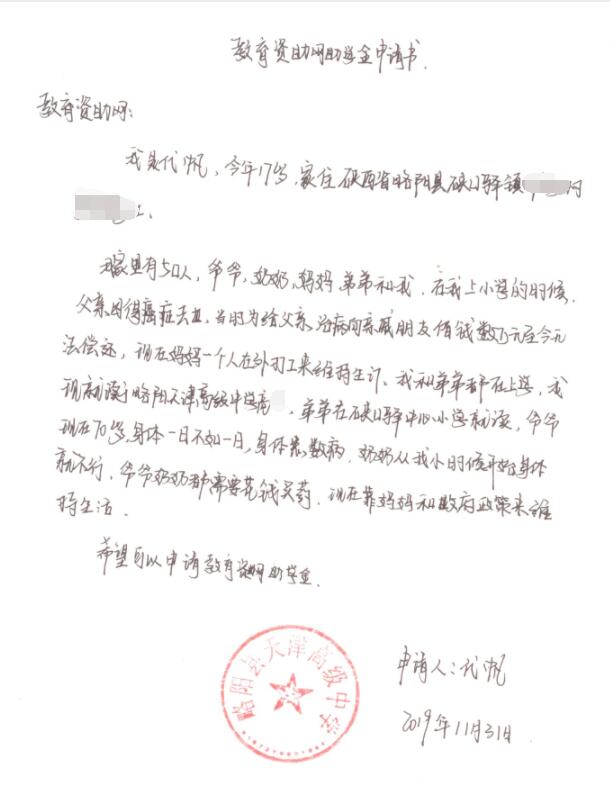 教育资助网助学金申请书.
教育资助网:
我是代帆，今年17岁，家住陕西省略阳县硖口驿镇
我家里有5口人，爷爷，奶奶，妈妈弟弟和我，在我上小学的时候，
父亲因得癌症去世，当时为给父亲治病向亲戚朋友借钱数万元至今无
法偿还，现在妈妈一个人在外打工来维持生计。我和弟弟都在上学，我
现就读于略阳天津高级中学高，弟弟在硖口驿中心小学就读，爷爷
现在70岁，身体一日不如一日，身体患数病，奶奶从我小时候开始身体
就不行，爷爷奶奶都需要花钱买药，现在靠妈妈和政府政策来维
持生活。
希望可以申请教育资助网助学金.
略阳县天津高级中学
申请人:代帆
2019年11月31日.